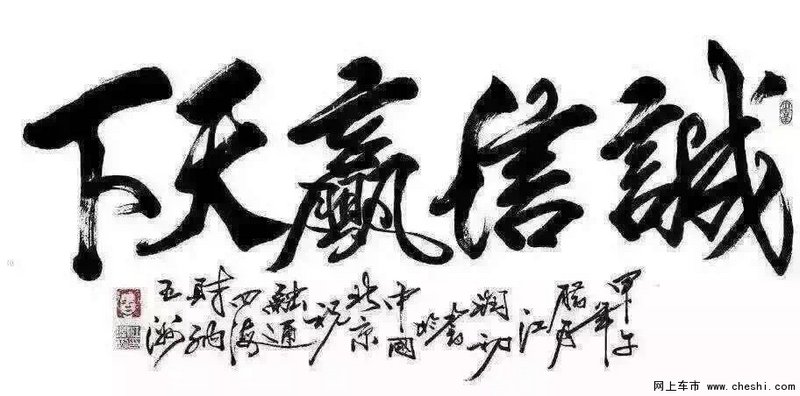 誠信贏天下
甲午年
臘月
江
書於
中國
北京
祝
融通
四海
財納
五洲
网上车市 www.cheshi.com